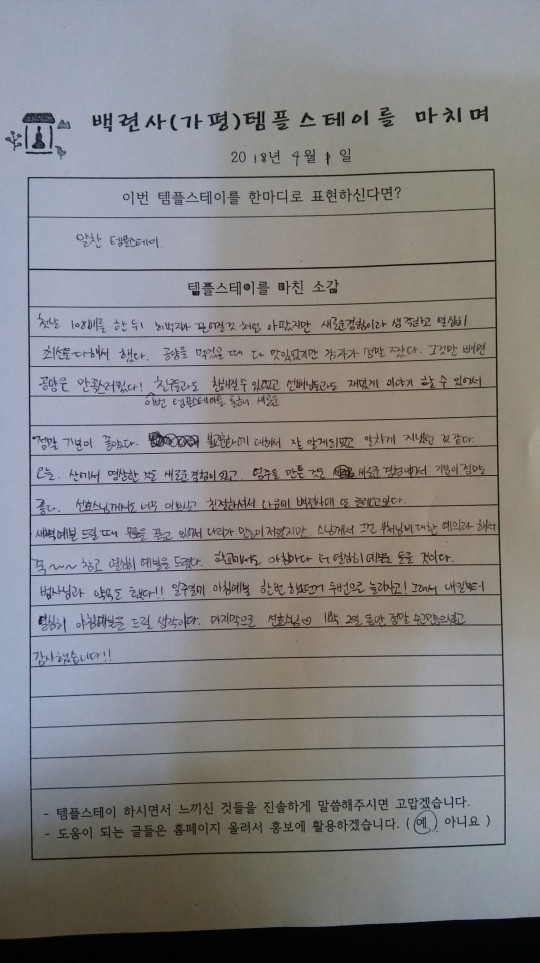 백련사(가평)템플스테이를 마치며
2018년 4월 1일
이번 템플스테이를 한마디로 표현하신다면?
알찬 템플스테이
템플스테이를 마친 소감
첫날 108배를 한 뒤 허벅지가 처럼 아팠지만 새로운경험이라 생각하고 열심히
최선을다해서 했다. 공양을 먹었을 때 다 맛있었지만 정말 짰다. 그것만 빼면
공양은 만족스러웠다! 친구들과도 친해질수 있었고 선배님들과도 재밌게 이야기 할 수 있어서
이번 템플스테이를 통해서 새로운
정말 기분이 좋았다. 불교문화에 대해서 잘 알게되었고 알차게 지냈던 것 같다.
오늘, 산에서 명상한 것도 새로운 경험이었고, 염주를 만든 것은 새로운 경험이여서 기분이 정말
좋다. 선효스님께서도 너무 이쁘시고 친절하셔서 다음에 백련사에 또 오고싶다.
새벽예불 드릴 때 무릎을 꿇고 있어서 다리가 많이 저렸지만, 스님께서 그건 부처님에 대한 예의라 해서
꾹~~~ 참고 열심히 예불을 드렸다. 학교에서도 아침마다 더 열심히 예불을 드릴 것이다.
법사님과 약속도 했다!! 일주일에 아침예불 한번 했던거 두번으로 늘리자고! 그래서 내일부터
열심히 아침예불을 드릴 생각이다. 마지막으로 선효스님♡ 1박 2일 동안 정말 수고많으셨고
감사했습니다!!
- 템플스테이 하시면서 느끼신 것들을 진솔하게 말씀해주시면 고맙겠습니다.
- 도움이 되는 글들은 홈페이지 올려서 홍보에 활용하겠습니다. ( 예 아니요 )